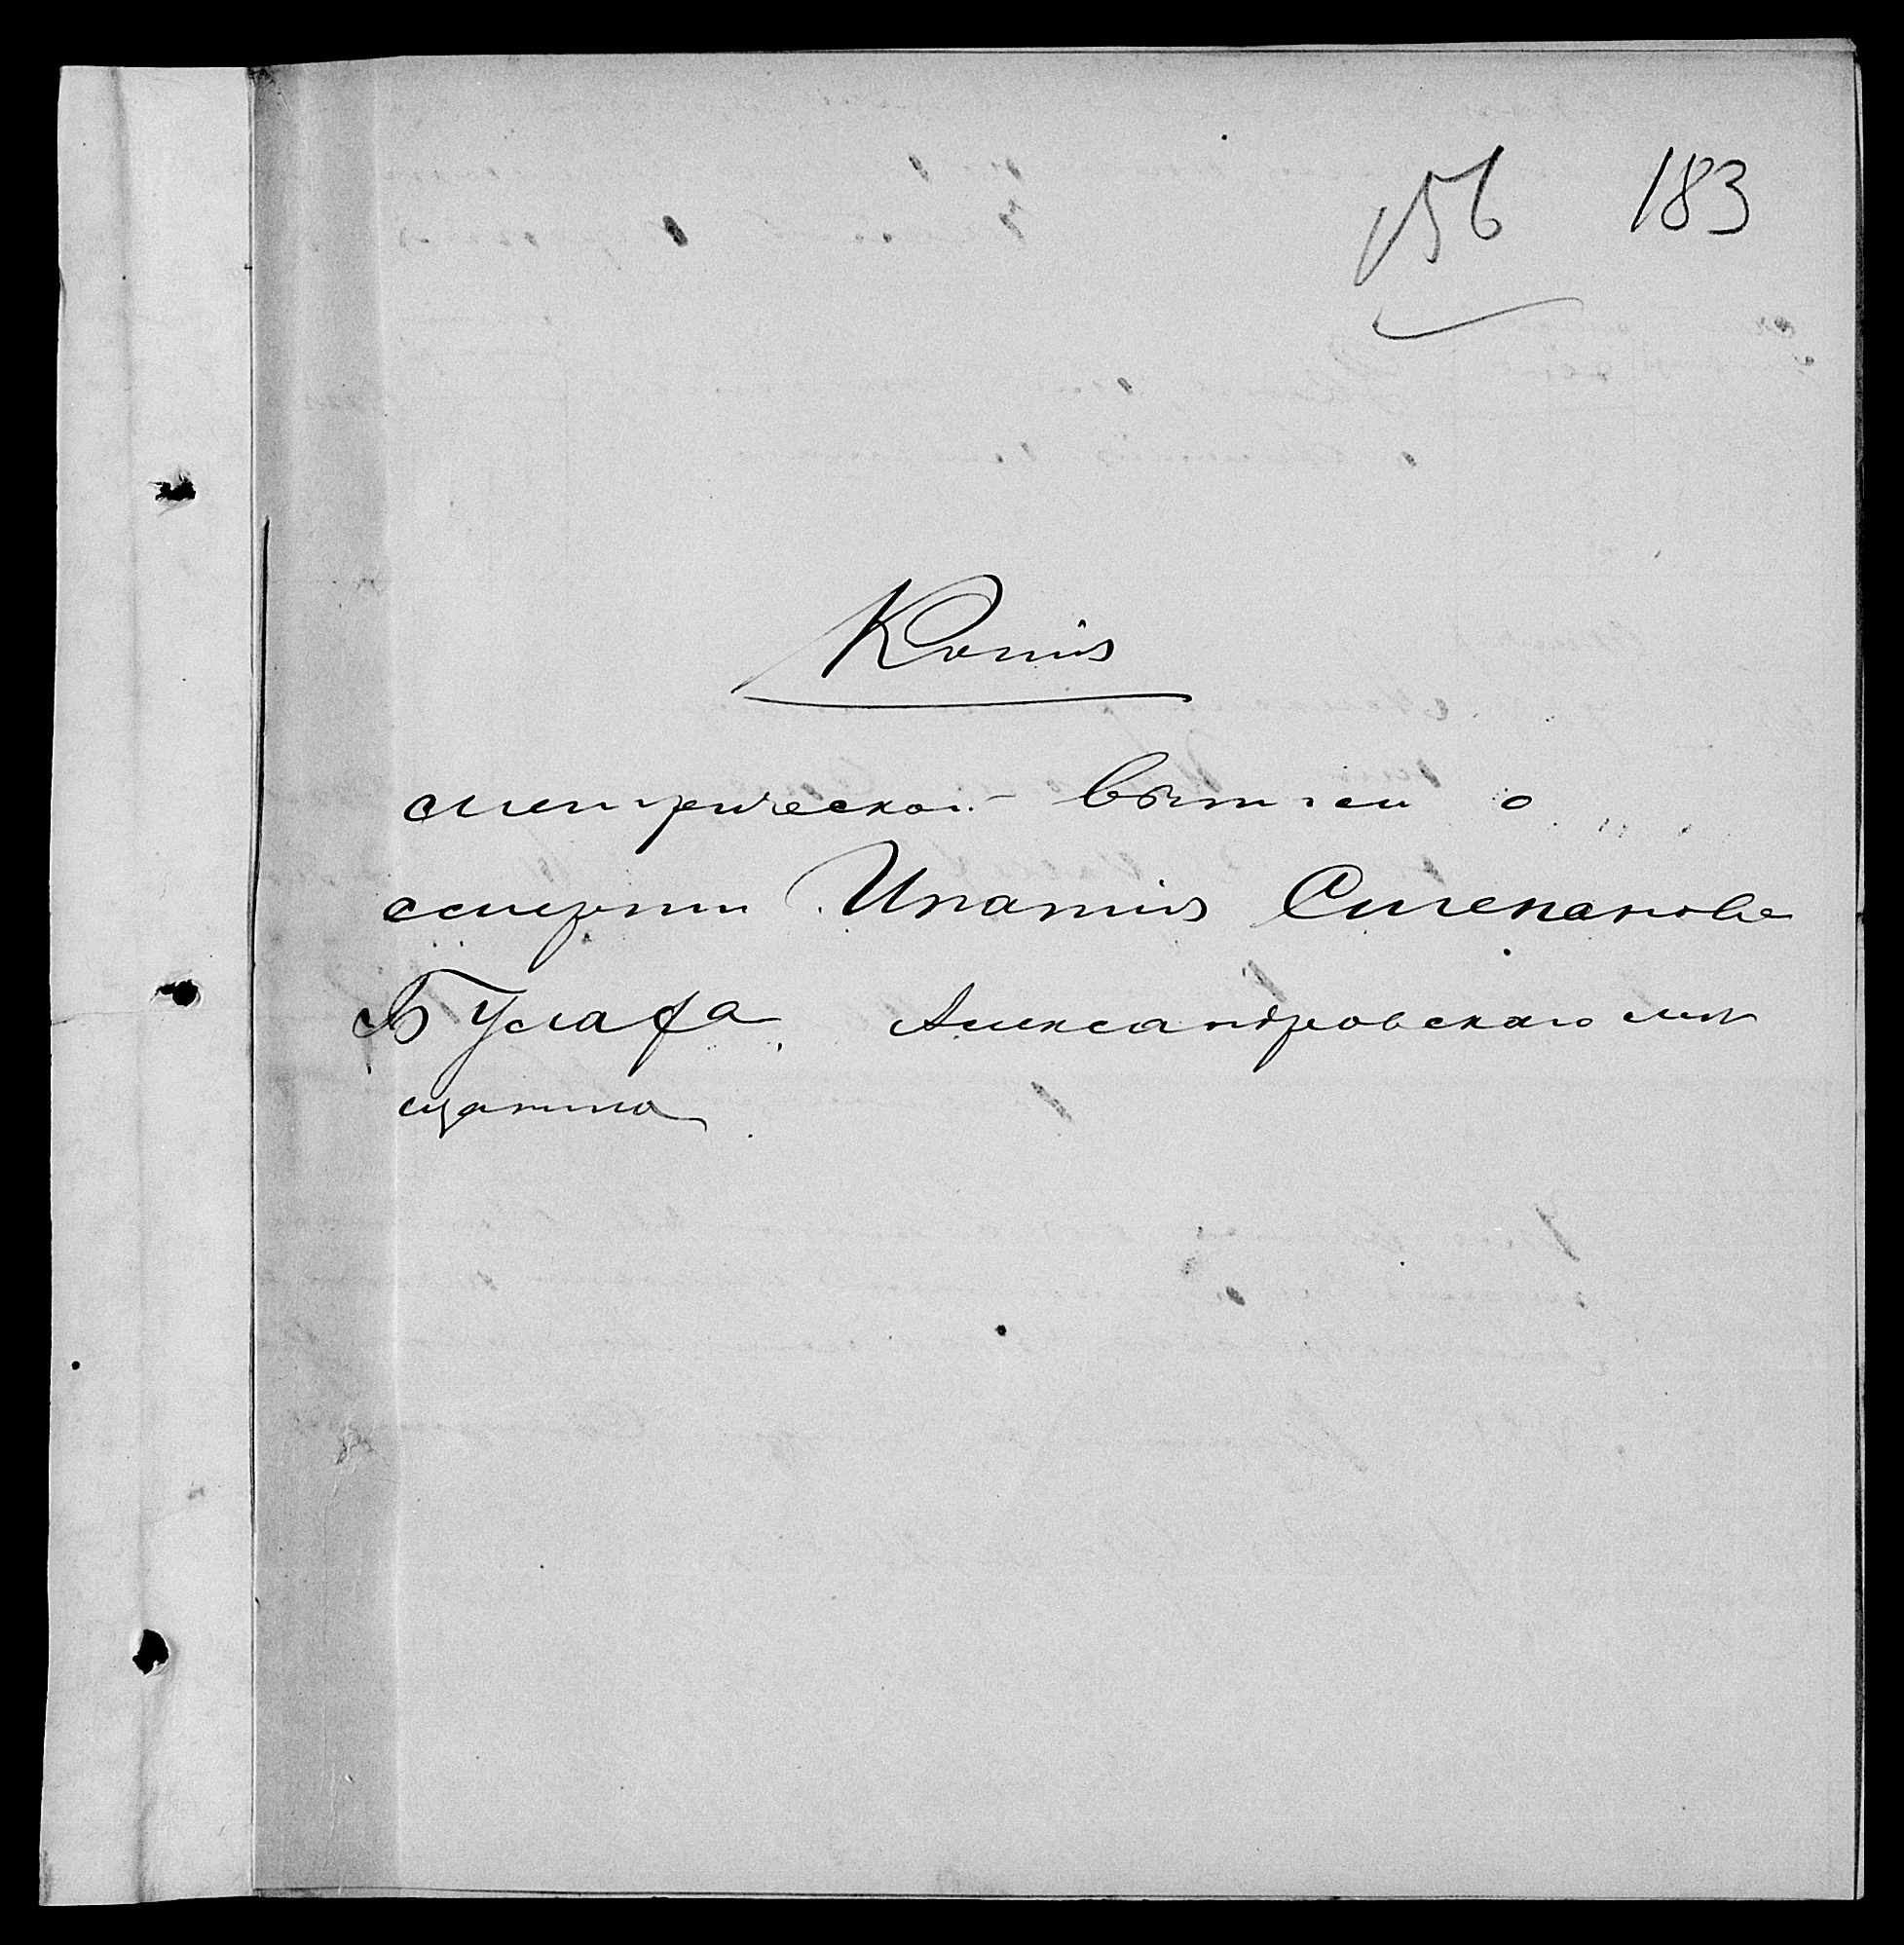 156 183
Копія
метрической выписи о
смерти Ипатія Степанова
Булафа, Александровскаго мѣ
щанина